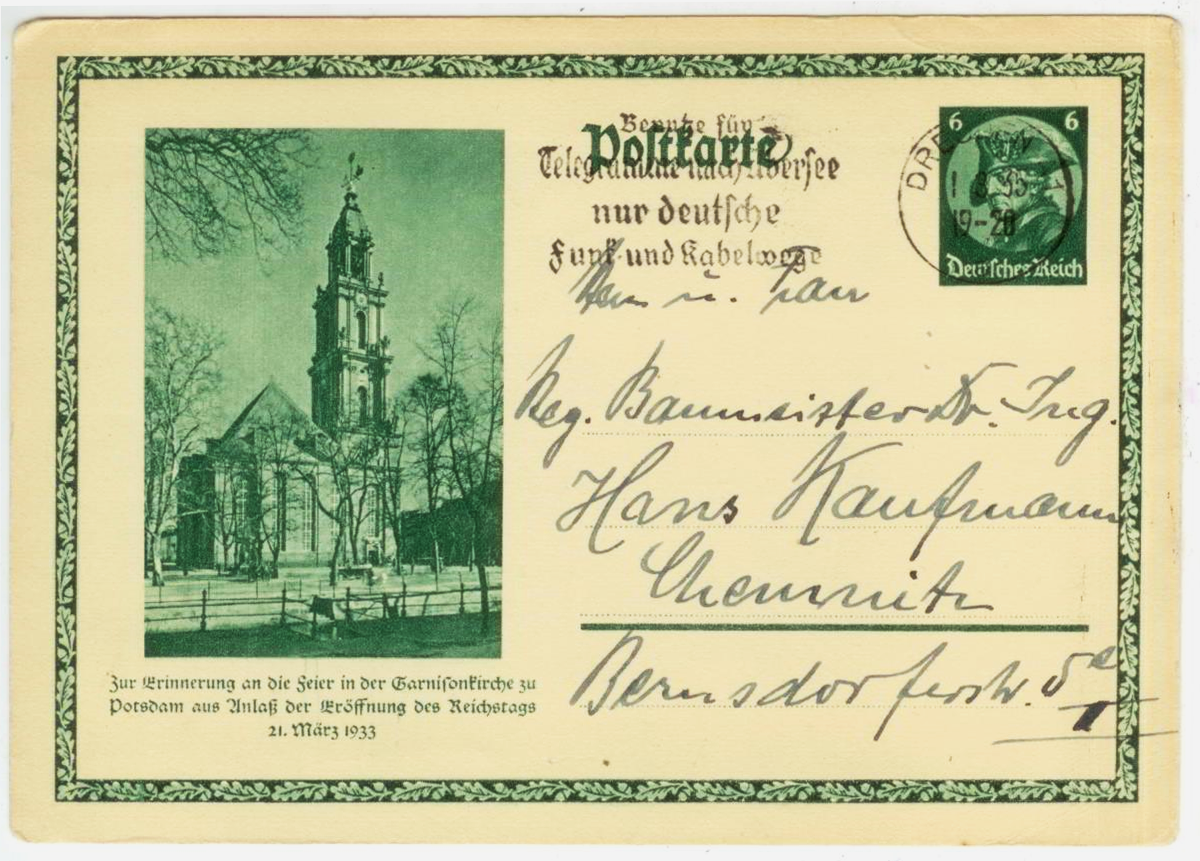 Postkarte
Benutze für
Telegramme nach Übersee
nur deutsche
Funk- und Kabelwege
6 6
DRESDEN
19-20
Deutsches Reich
u. Frau
Reg. Baumeister Dr. Ing.
Hans Kaufmann
Chemnitz
Bernsdorferstr. 5
I
Zur Erinnerung an die Feier in der Garnisonkirche zu
Potsdam aus Anlaß der Eröffnung des Reichstags
21. März 1933